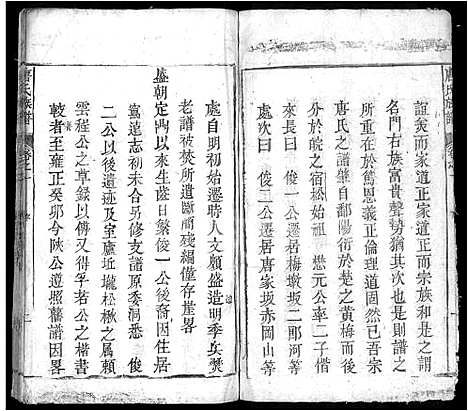 誼夾而家道正家道正而宗族和是之謂
名門右族富貴聲勢猶其次也是則譜之
所重在於篤恩義正倫理道固然已吾宗
唐氏之譜肇自鄱陽衍於楚之黃梅
分於皖之宿松始祖　懋元公率二子偕
來長曰　俊一公遷居梅墩坂二郎河等
處次曰　俊二公遷居唐家坂赤岡山等
處自明初始遷時人文頗盛造明季兵燹
老譜被焚所遺斷簡殘編僅存崖畧
盛朝定鼎以來齒日繁俊一公後裔徙住居
鴛遠志初未合另修支譜原委洞悉　俊
二公以後遺迹及室廬坵壠松楸之屬賴
雲程公之草錄以傳又得孚若公之楷書
較者乙至雍正癸卯今陜公遵照舊譜因畧
唐氏族譜
唐氏族譜